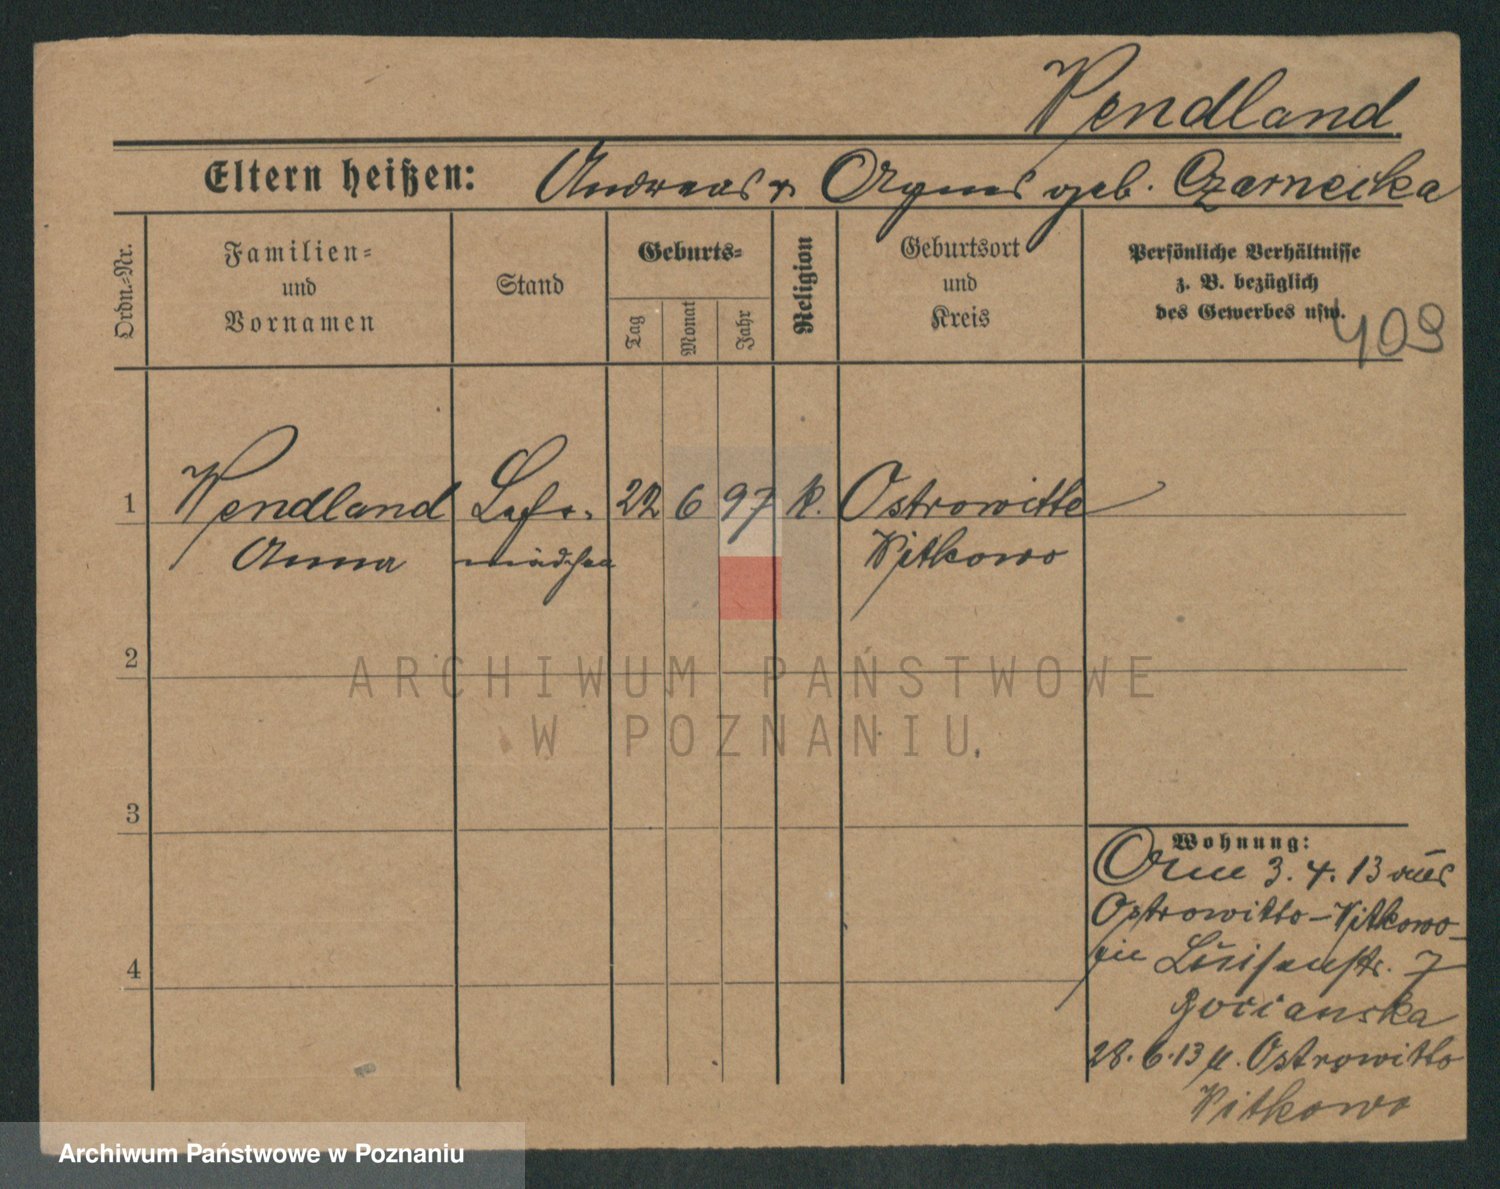 Wendland.
Eltern heißen: Andreas u. Agnes geb. Czarnecka
Ordn.-Nr.
Familien- und Vornamen
Stand
Geburts-
Tag
Monat
Jahr
Religion
Geburtsort und Kreis
Persönliche Verhältnisse
z. B. bezüglich
des Gewerbes usw.
409
1 Wendland 22 6 97 k. Ostrowitte
Anna mädchen Witkowo
2
ARCHIWUM PAŃSTWOWE
W POZNANIU
3
Wohnung:
3. 4. 13 aus
Ostrowitto-Witkowo
Luisenstr. 7
4
28. 6. 13 Ostrowitto
Witkowo
Archiwum Państwowe w Poznaniu